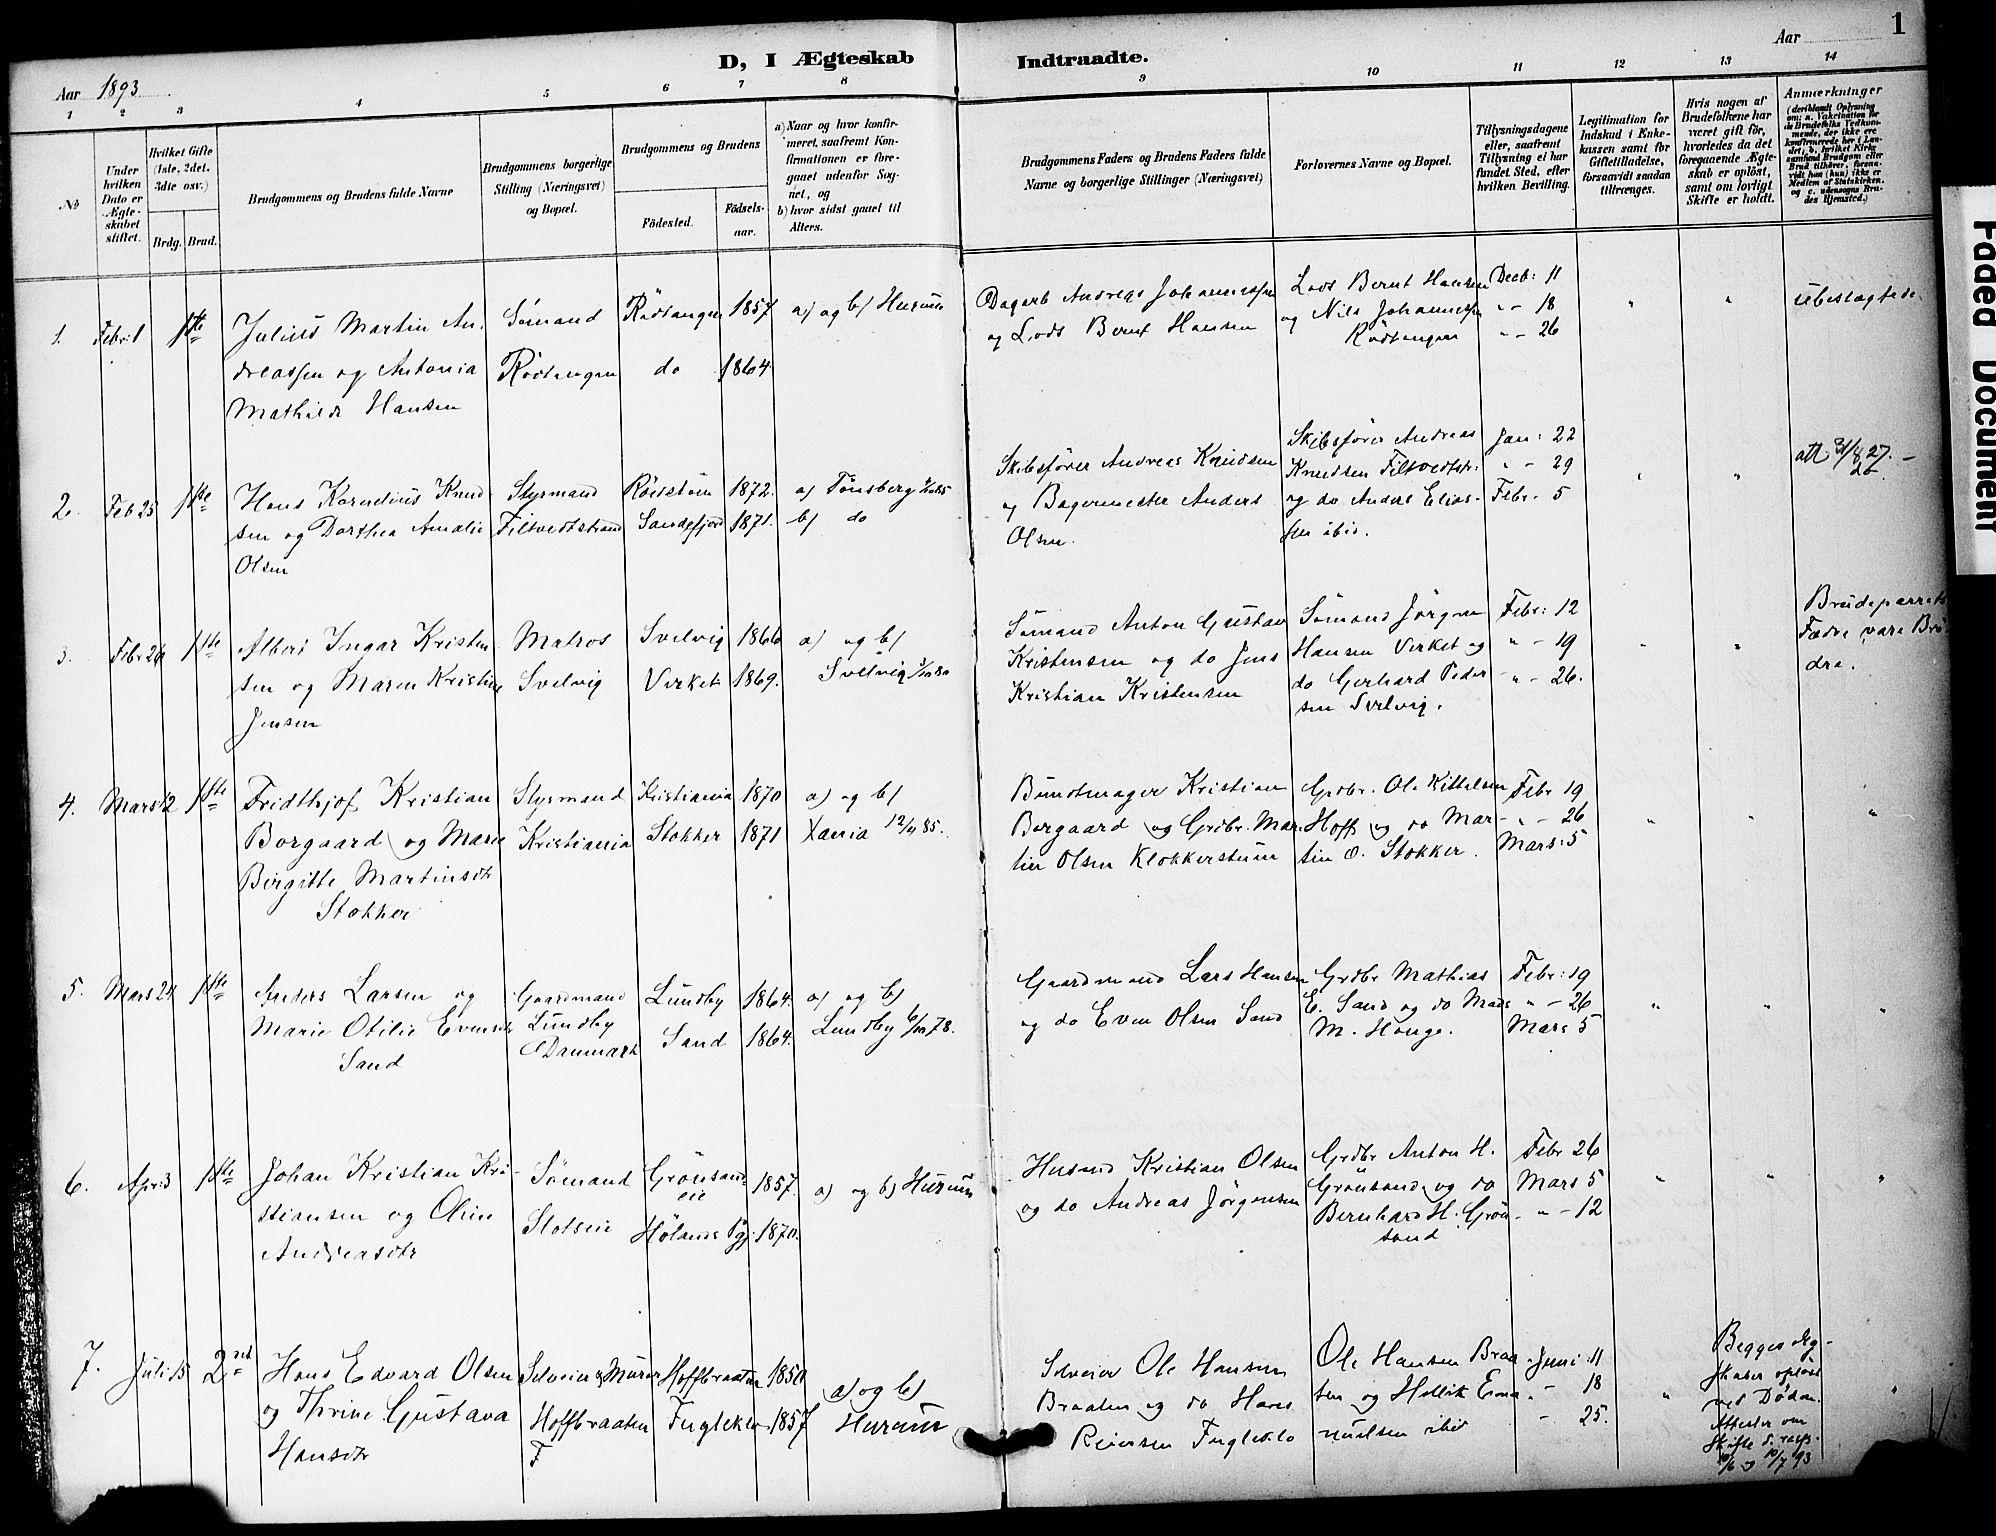 D, I Ægteskab Indtraadte.
Aar 1893
Aar
1
1 2 3 4 5 6 7 8 9 10 11 12 13 14
№
Under
hvilken
Dato er
Ægte-
skabet
stiftet.
Hvilket Gifte
(1ste, 2det.
3dte osv.)
Brdg. Brud.
Brudgommens og Brudens fulde Navne
Brudgommens borgerlige
Stilling (Næringsvei)
og Bopæl.
Brudgommens og Brudens
Födested.
Födsels-
aar.
a) Naar og hvor konfir-
meret, saafremt Kon-
firmationen er fore-
gaaet udenfor Sog-
net, og
b) hvor sidst gaaet til
Alters.
Brudgommens Faders og Brudens Faders fulde
Navne og borgerlige Stillinger (Næringsvei)
Forlovernes Navne og Bopæl.
Tillysningsdagene
eller, saafremt
Tillysning ei har
fundet Sted, efter
hvilken Bevilling.
Legitimation for
Indskud i Enke-
kassen samt for
Giftetilladelse,
forsaavidt saadan
tiltrænges.
Hvis nogen af
Brudefolkene har
været gift för,
hvorledes da det
foregaaende Ægte-
skab er oplöst,
samt om lovligt
Skifte er holdt.
Anmærkninger
(deriblandt Oplysning
om: a. Vakcination for
de Brudefolks Vedkom-
mende, der ikke ere
konfirmerede her i Lan-
det; b. hvilket Kirke-
samfund Brudgom eller
Brud tilhörer, forsaa-
vidt han (hun) ikke er
Medlem af Statskirken,
og c. udensogns Bru-
des Hjemsted.)
1. Febr: 1 1ste
Julius Martin An-
dreassen og Antonia
Mathilde Hansen
Sømand
Rödtangen
Rödtangen 1857
do 1864
a) og b) Hurum
Dagarb Andreas Johannessen
og Lods Bernt Hansen
Lods Bernt Hansen
og Nils Johannessen
Rödtangen
Decb: 11
" - 18
" - 26
" "
ubeslægtede
2. Feb 25 1ste
Hans Kornelius Knud-
sen og Dorthea Amalie
Olsen
Styrmand
Filtvedtstrand
1872.
Sandefjord 1871.
a) Tønsberg
b) do
Skibsfører Andreas Knudsen
og Bagermester Anders
Olsen.
Skibsfører Andreas
Knudsen Filtvedtstr:
og do Anders Elias-
sen ibid.
Jan: 22
" - 29
Febr. 5
" "
att 31/8 27.
3. Febr 26 1ste
Albert Ingar Kristen
sen og Maren Kristine
Jensen
Matros
Svelvig
Svelvig 1866
Virket 1869.
a) og b)
Svelvig
Sømand Anton Gustav
Kristensen og do Jens
Kristian Kristensen
Sømand Jörgen
Hansen Virket og
do Gerhard Peder
sen Svelvig.
Febr: 12
" - 19
" - 26.
" "
Brudeparrets
Fædre vare Brö-
dre.
4. Mars 12 1ste
Fridthjof Kristian
Borgaard og Marie
Birgitte Martinsdtr
Stokker
Styrmand
Kristiania
Kristiania 1870
Stokker 1871
a) og b)
Xania 12/4 85.
Buntmager Kristian
Borgaard og Grdbr. Mar-
tin Olsen Klokkerstuen
Grdbr. Ole Kittelsen
Hoff og do Mar-
tin O. Stokker.
Febr 19
" - 26
Mars: 5
" " "
5. Mars 24 1ste
Anders Larsen og
Marie Otilie Evensdtr
Sand
Gaardmand
Lundby
Danmark
Lundby 1864.
Sand 1864.
a) og b)
Lundby 6/10 78.
Gaardmand Lars Hansen
og do Even Olsen Sand
Grdbr Mathias
E. Sand og do Mads
M. Hauge.
Febr: 19
" - 26
Mars 5
" " "
6. Apr: 3 1ste
Johan Kristian Kri-
stiansen og Oline
Andreasdtr
Sømand
Slotseie
Grönsand
eie 1857.
Hölens Pgj. 1870.
a) og b) Hurum
Husmd Kristian Olsen
og do Andreas Jörgensen
Grdbr Anton H.
Grönsand og do
Bernhard H. Grön-
sand
Febr 26
Mars 5
" - 12
" " "
7. Juli 15 2net
Hans Edvard Olsen
og Thrine Gustava
Hansdtr
Selveier & Murer
Hoffbraaten
F
Hoffbraaten 1850
Fugleklo 1857
a) og b)
Hurum
Selveier Ole Hansen
Braaten og do Hans
Reiersen Fugleklo
Ole Hansen Braa-
ten og Hellik Ema
nuelsen ibid
Juni: 11
- 18
- 25.
"
Begges Æg-
skaber oplöst
ved Döden.
Attester om
Skifte d.
10/6 og 10/7 93
"
Faded Document